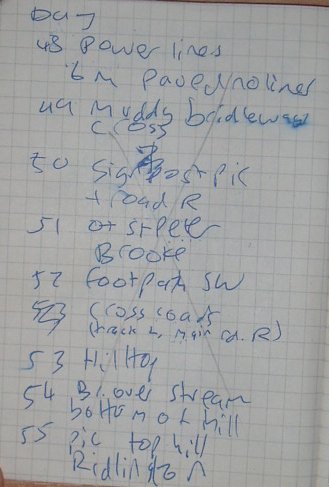 Day
48 Power lines
6 m paved no lines
49 Muddy bridleway
cross
50 Signpost pic
+ road R
51 ot st Peter
Brooke
52 footpath SW
Cross roads
(track L, main rd. R)
53 Hilltop
54 Br. over stream
bottom of hill
55 pic top hill
Ridlington